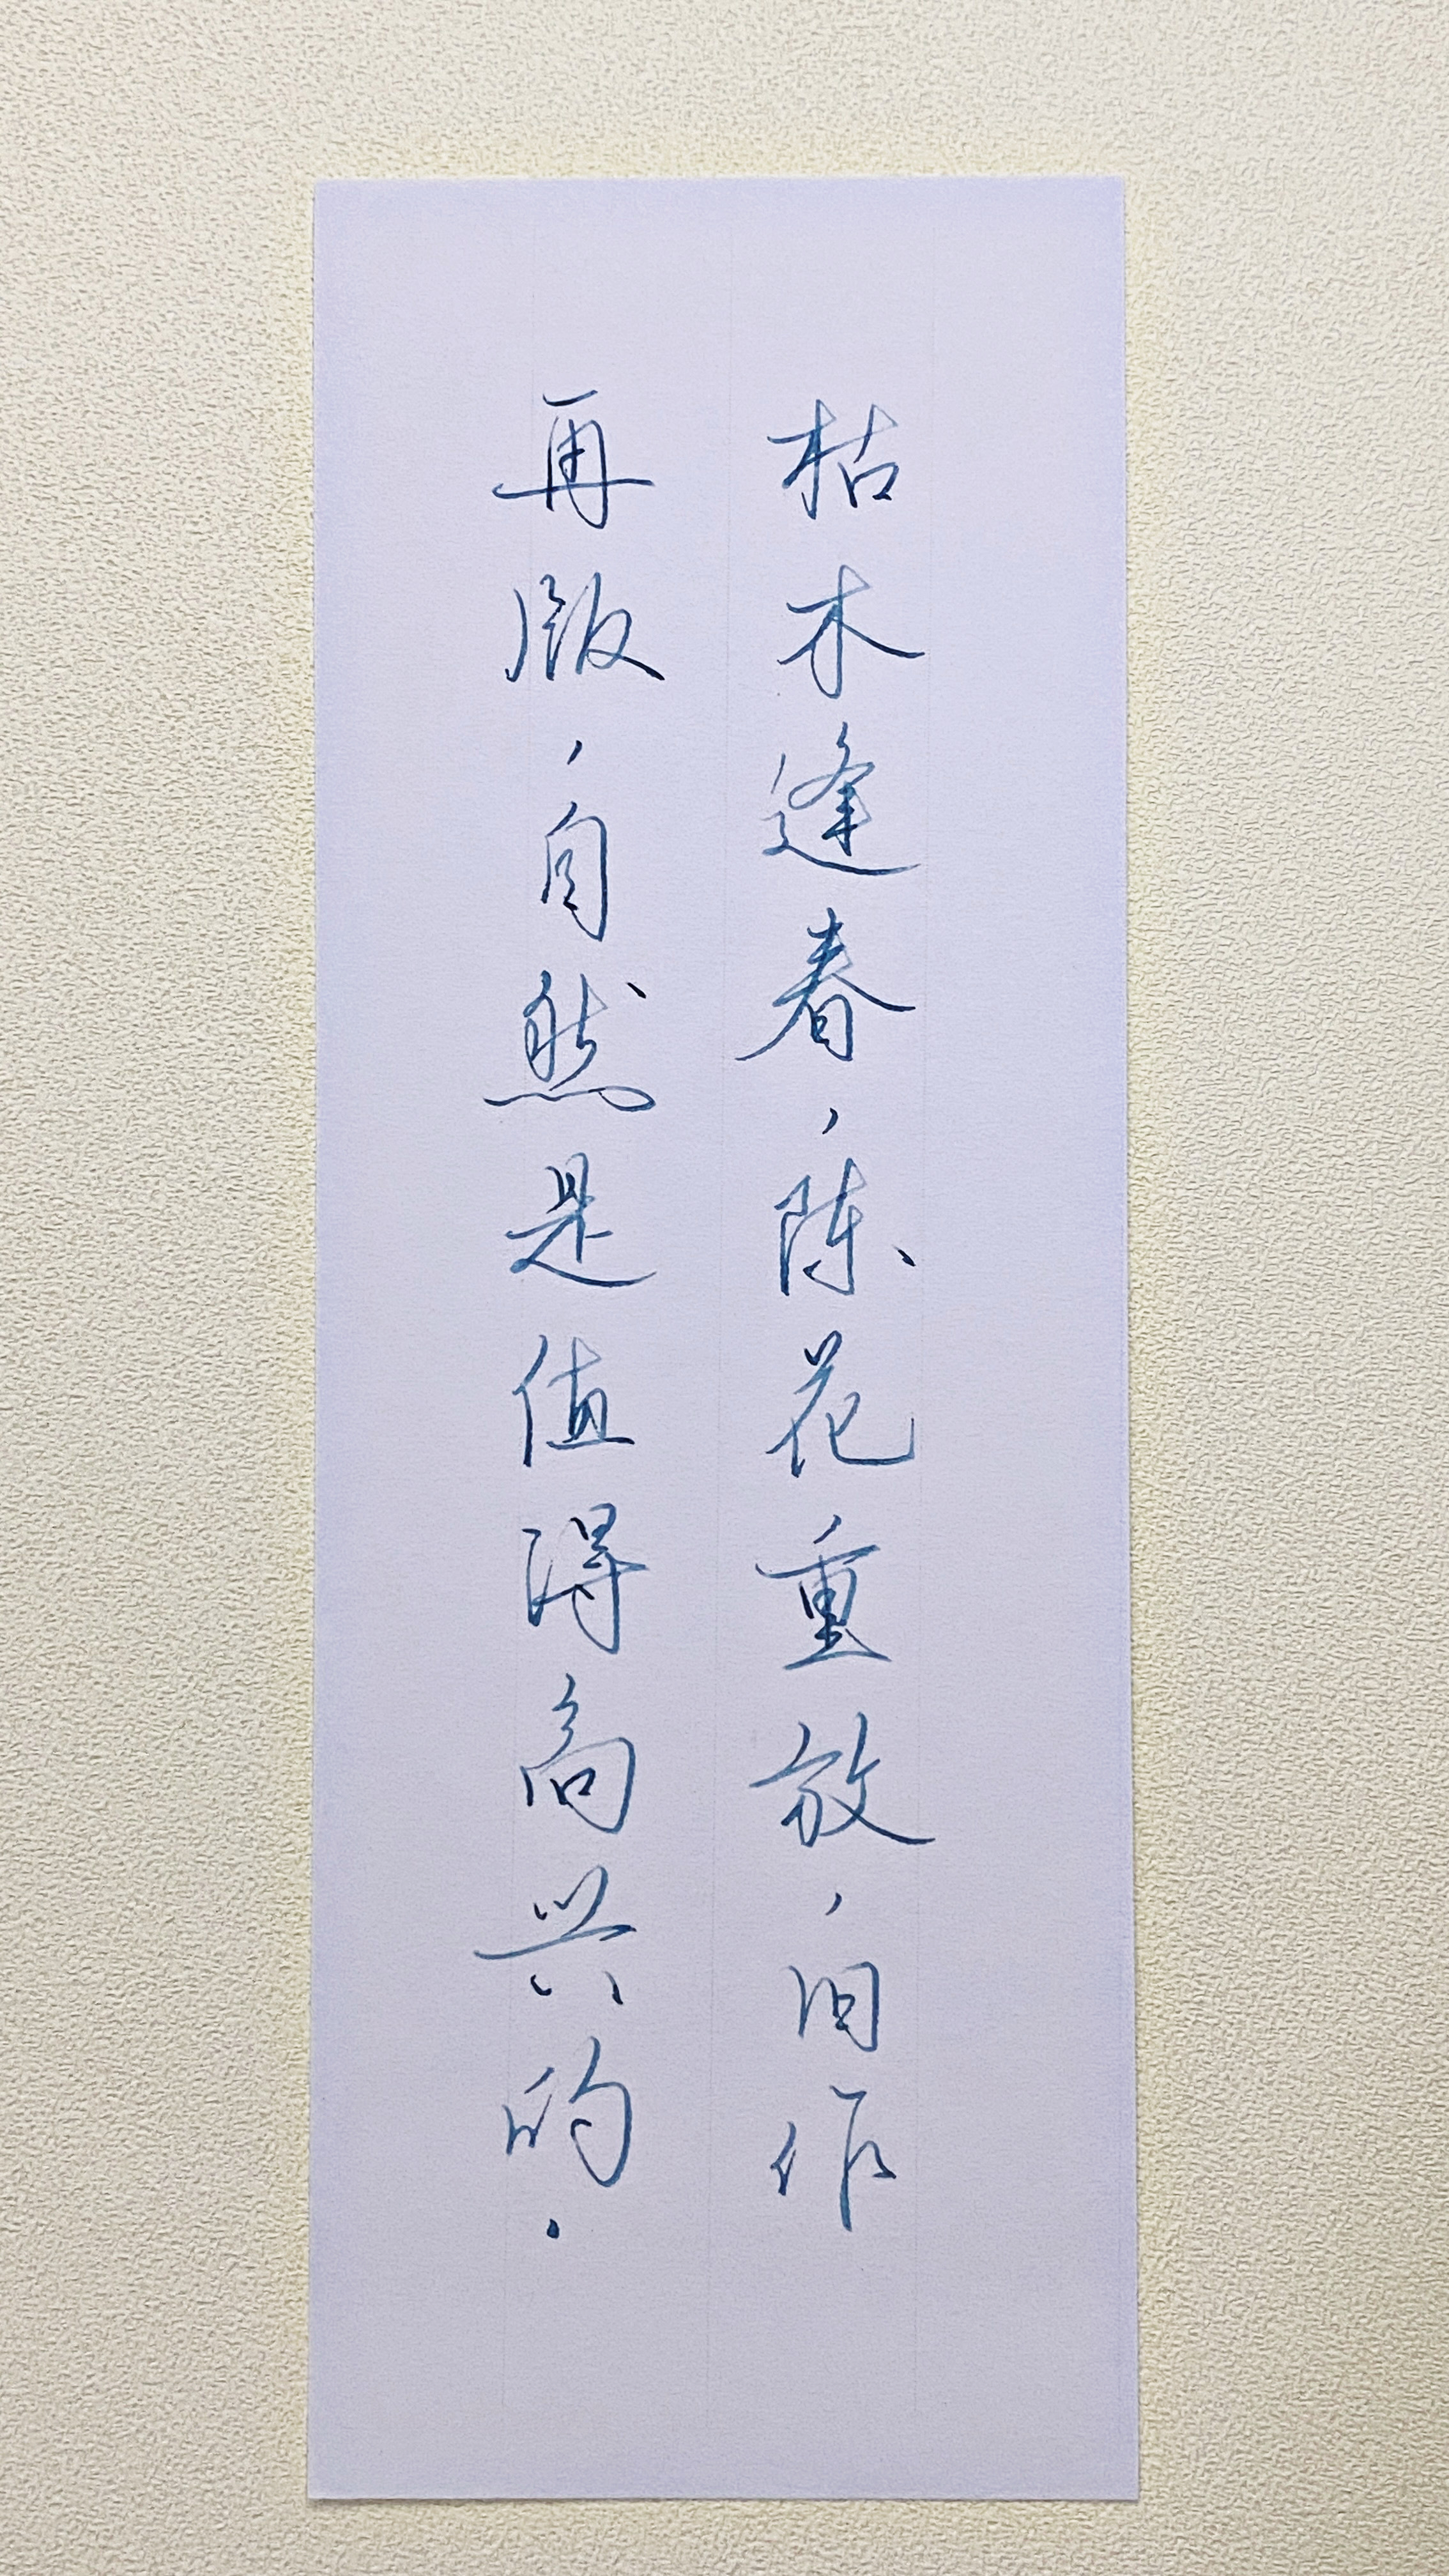 枯木逢春，陈花重放，旧作
再版，自然是值得高兴的．